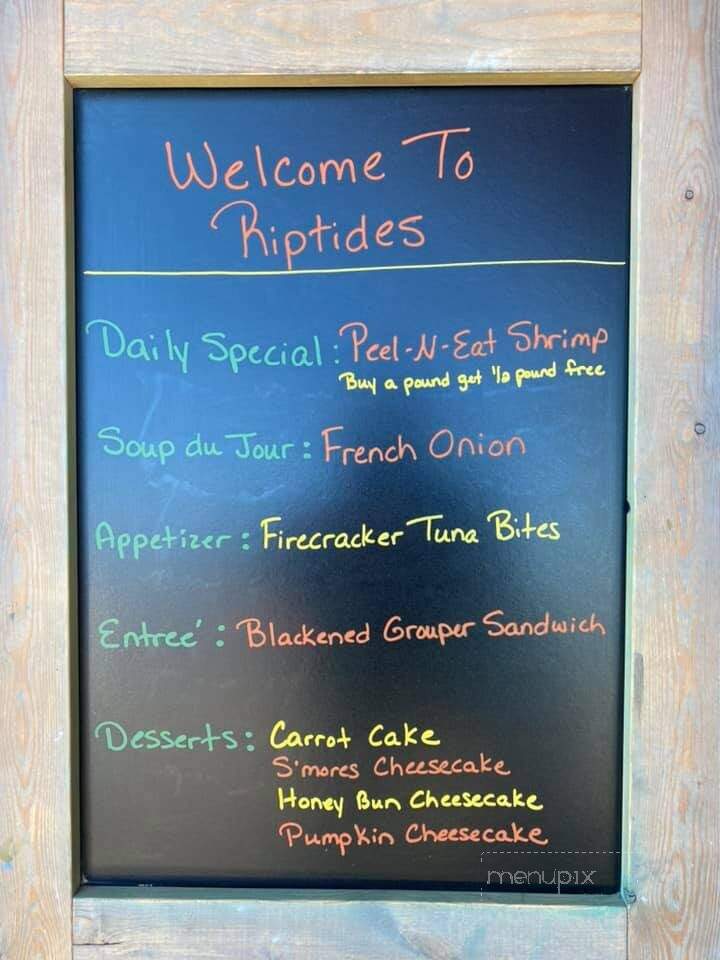 Welcome To
Riptides
Daily Special : Peel-N-Eat Shrimp
Buy a pound get 1/2 pound free
Soup du Jour : French Onion
Appetizer : Firecracker Tuna Bites
Entree' : Blackened Grouper Sandwich
Desserts : Carrot Cake
S'mores Cheesecake
Honey Bun Cheesecake
Pumpkin Cheesecake
menupix